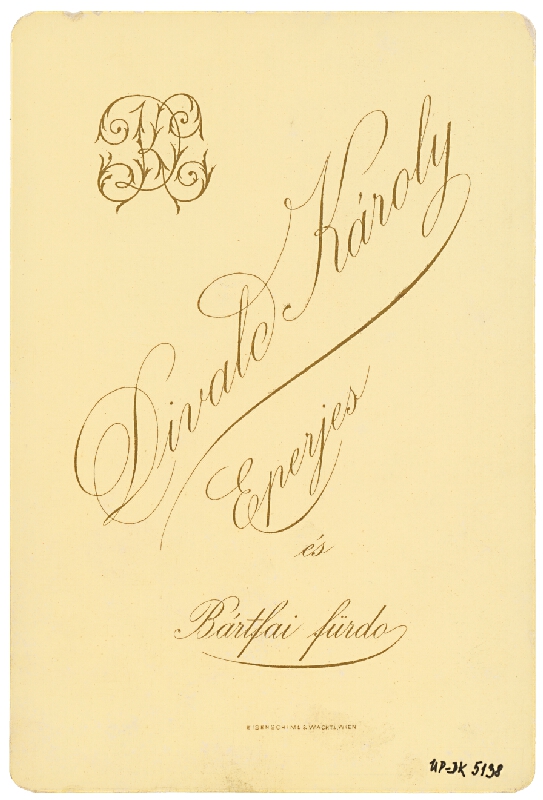 Divald Károly
Eperjes
és
Bártfai fürdo
EISENSCHIML & WACHTL, WIEN
ÚP-JK 5138